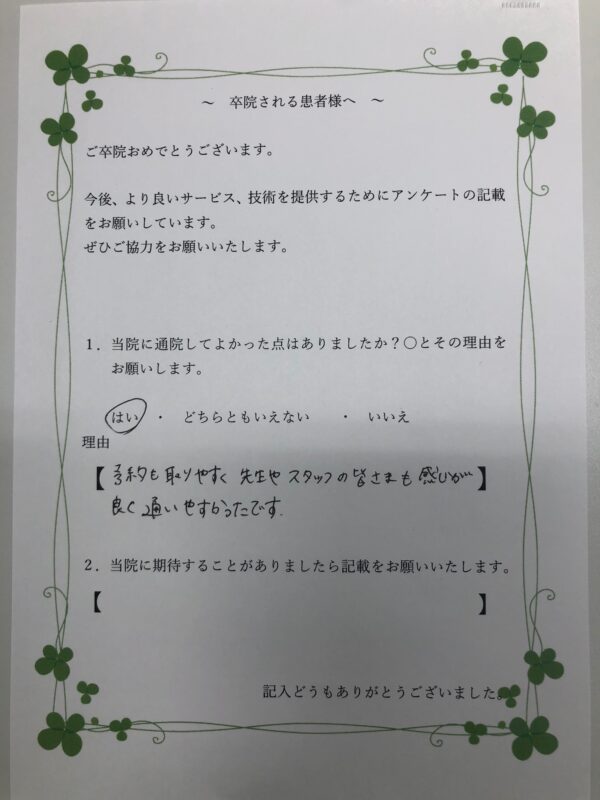 ～　卒院される患者様へ　～
ご卒院おめでとうございます。
今後、より良いサービス、技術を提供するためにアンケートの記載
をお願いしています。
ぜひご協力をお願いいたします。
１．当院に通院してよかった点はありましたか？〇とその理由を
お願いします。
はい　・　どちらともいえない　・　いいえ
理由
【予約も取りやすく 先生やスタッフの皆さまも感じが】
良く通いやすかったです.
２．当院に期待することがありましたら記載をお願いいたします。
【　】
記入どうもありがとうございました。